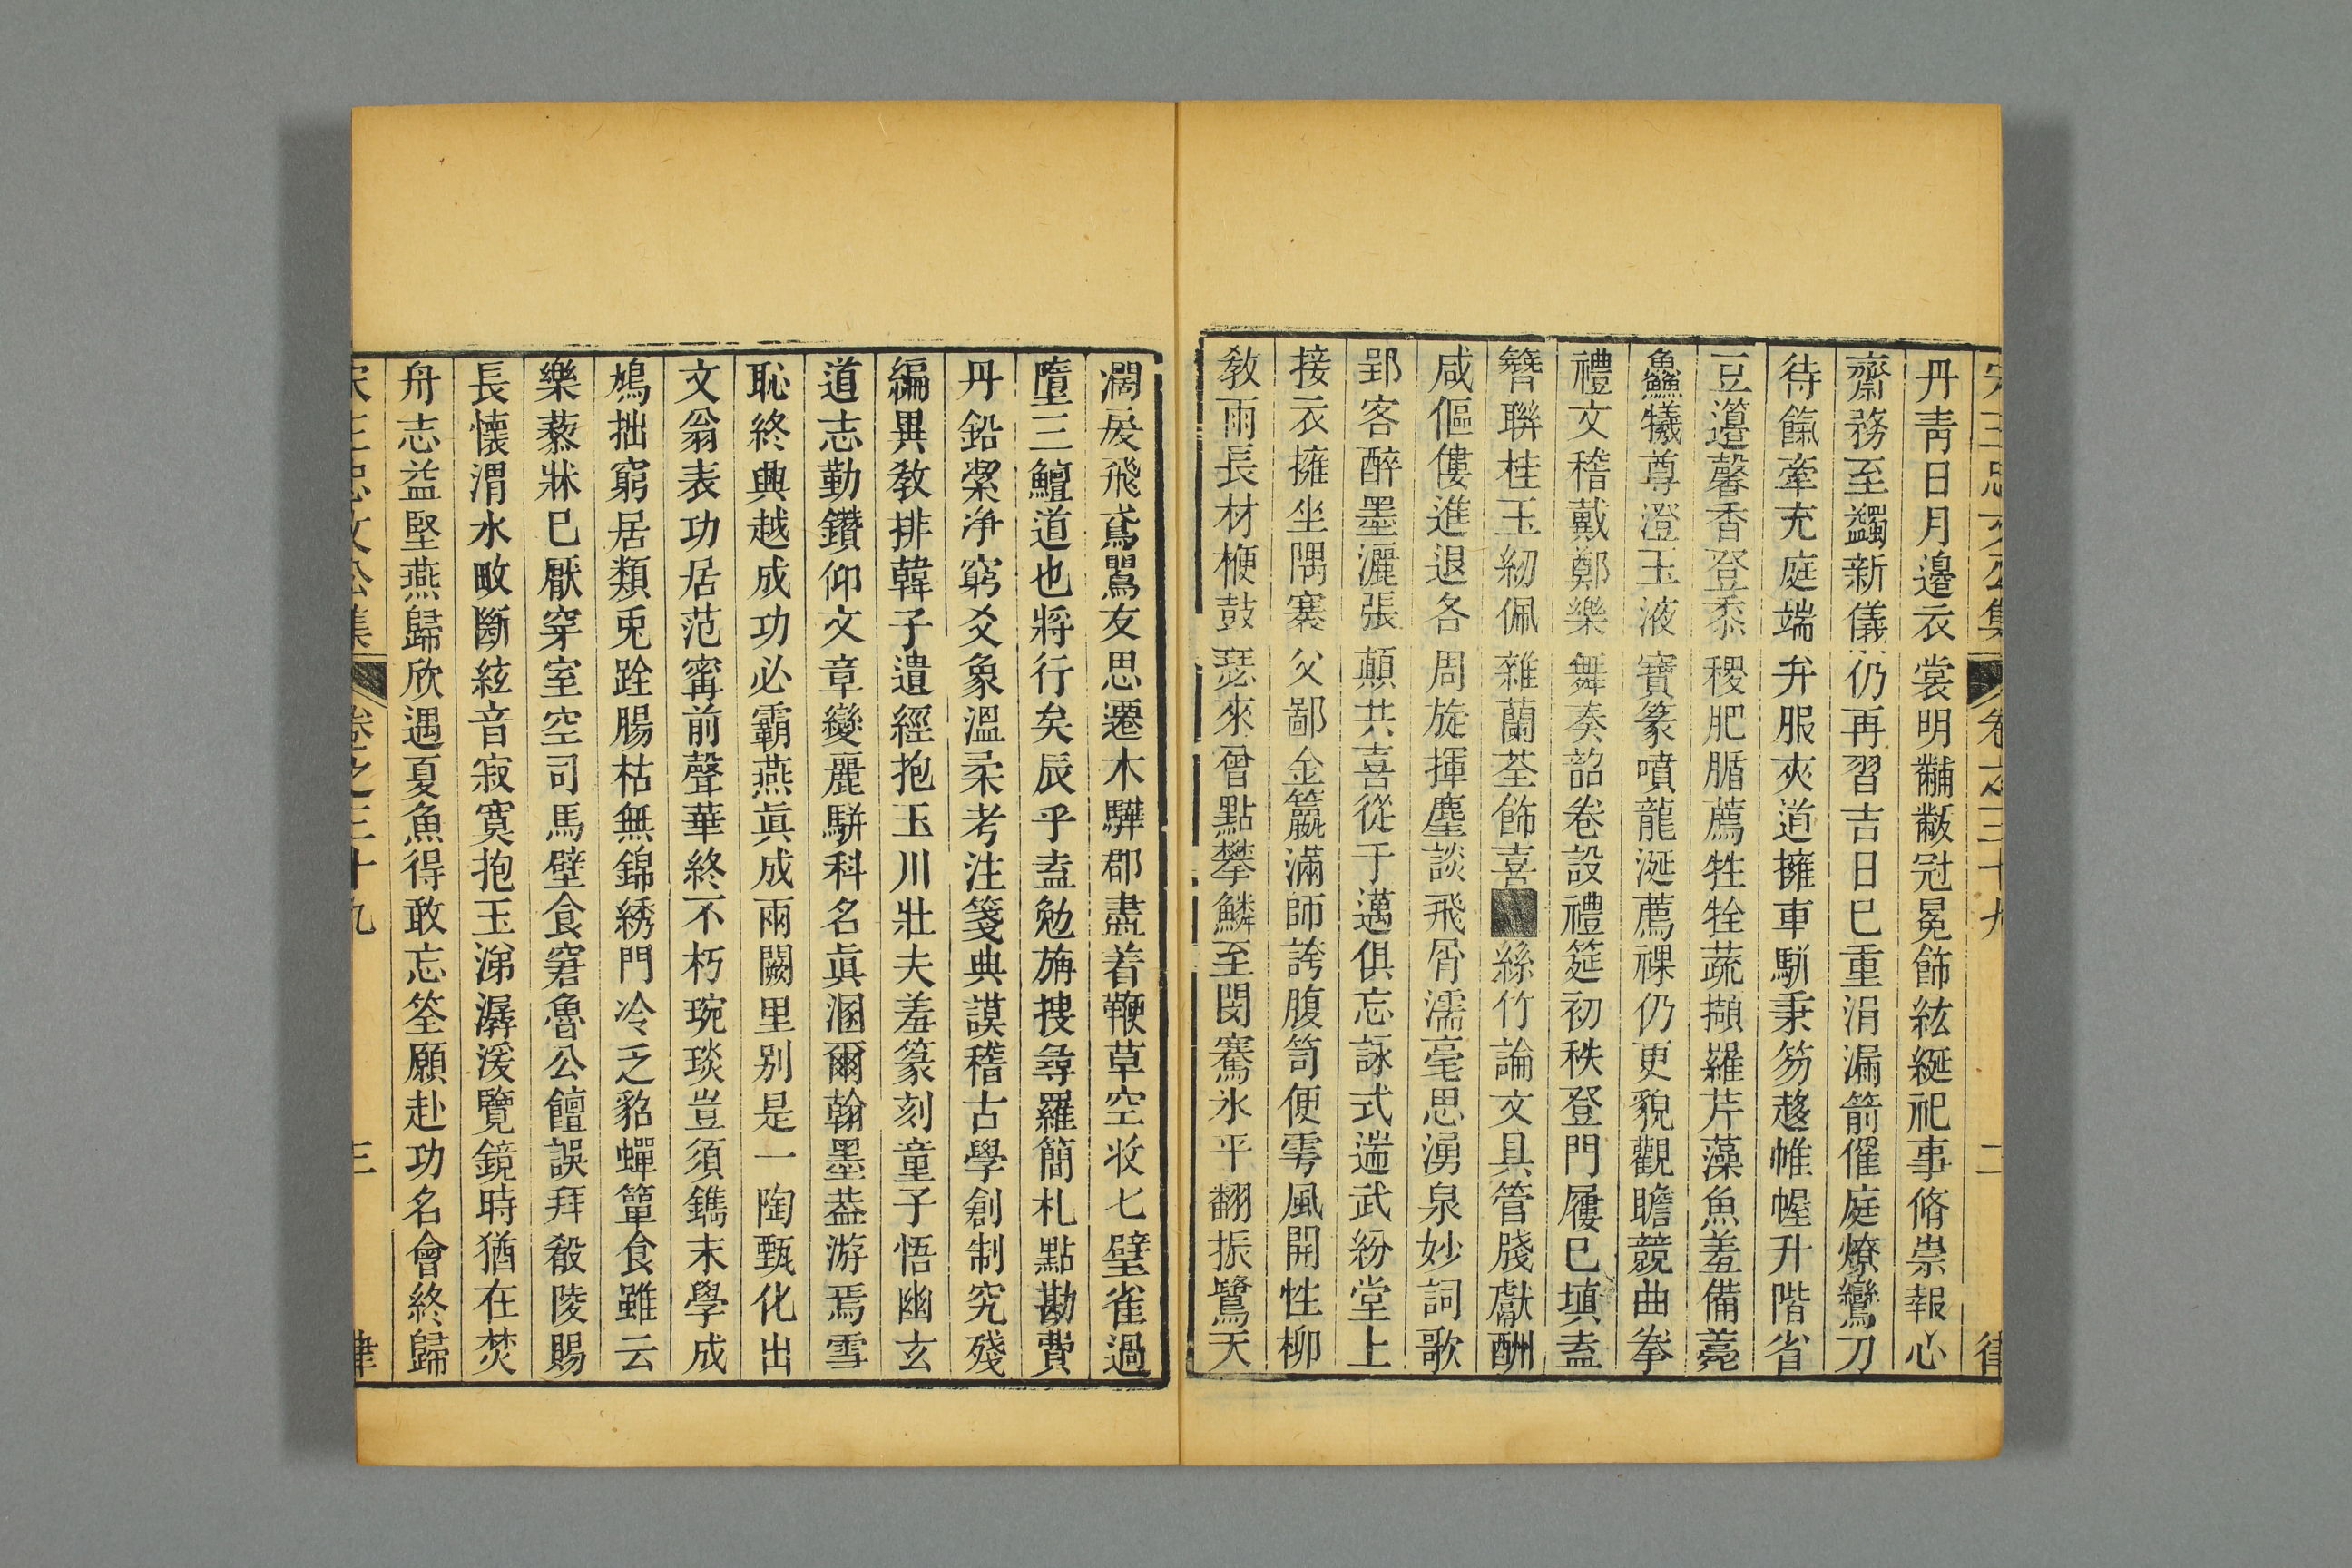 宋王忠文公集 卷之三十九 二 律
丹青日月邉衣裳明黼黻冠冕飾紘綖祀事脩崇報心
齋務至蠲新儀仍再習吉日巳重涓漏箭催庭燎鸞刀
待餼牽充庭端弁服夾道擁車駢秉笏趍帷幄升階省
豆籩馨香登黍稷肥腯薦牲牷蔬擷羅芹藻魚羞備薧
鱻犧尊澄玉液寶篆噴龍涎薦祼仍更貌觀瞻競曲拳
禮文稽戴鄭樂舞奏韶卷設禮筵初秩登門屨巳塡盍
簪聯桂玉紉佩雜蘭荃飾喜■絲竹論文具管牋獻酬
咸傴僂進退各周旋揮麈談飛屑濡毫思湧泉妙詞歌
郢客醉墨灑張顛共喜從于邁俱忘詠式遄武紛堂上
接衣擁坐隅褰父鄙金籯滿師誇腹笥便雩風開性柳
敎雨長材楩鼓瑟來曾點攀鱗至閔騫氷平翻振鷺天
濶戾飛鳶鸎友思遷木驊郡盡着鞭草空妝七璧雀過
墮三鱣道也將行矣辰乎盍勉旃搜尋羅簡札點勘費
丹鉛潔净窮爻象溫柔考注箋典謨稽古學創制究殘
編異敎排韓子遺經抱玉川壯夫羞篆刻童子悟幽玄
道志勤鑽仰文章變麗駢科名眞溷爾翰墨葢游焉雪
恥終興越成功必霸燕眞成兩闕里别是一陶甄化出
文翁表功居范甯前聲華終不朽琬琰豈須鐫末學成
鳩拙窮居類兎跧腸枯無錦綉門冷乏貂蟬簞食雖云
樂藜牀巳厭穿室空司馬壁食窘魯公饘誤拜殽陵賜
長懷渭水畋斷絃音寂寞抱玉涕潺湲覽鏡時猶在焚
舟志益堅燕歸欣遇夏魚得敢忘筌願赴功名會終歸
宋王忠文公集 卷之三十九 三 律